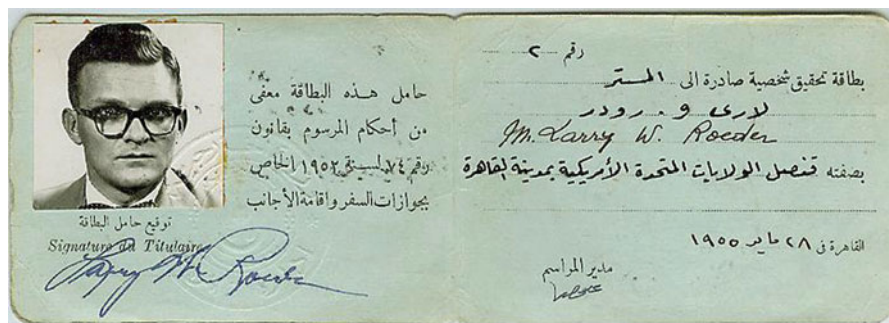 رقم ٢
بطاقة تحقيق شخصية صادرة الى المستر
لارى و. رودر
Mr. Larry W. Roeder
بصفته قنصل الولايات المتحدة الأمريكية بمدينة القاهرة
القاهرة فى ٢٨ مايو ١٩٥٥
مدير المراسم
حامل هذه البطاقة معفى
من أحكام المرسوم بقانون
رقم ٧٤ لسنة ١٩٥٢ الخاص
بجوازات السفر واقامة الأجانب
توقيع حامل البطاقة
Signature du Titulaire
Larry W. Roeder